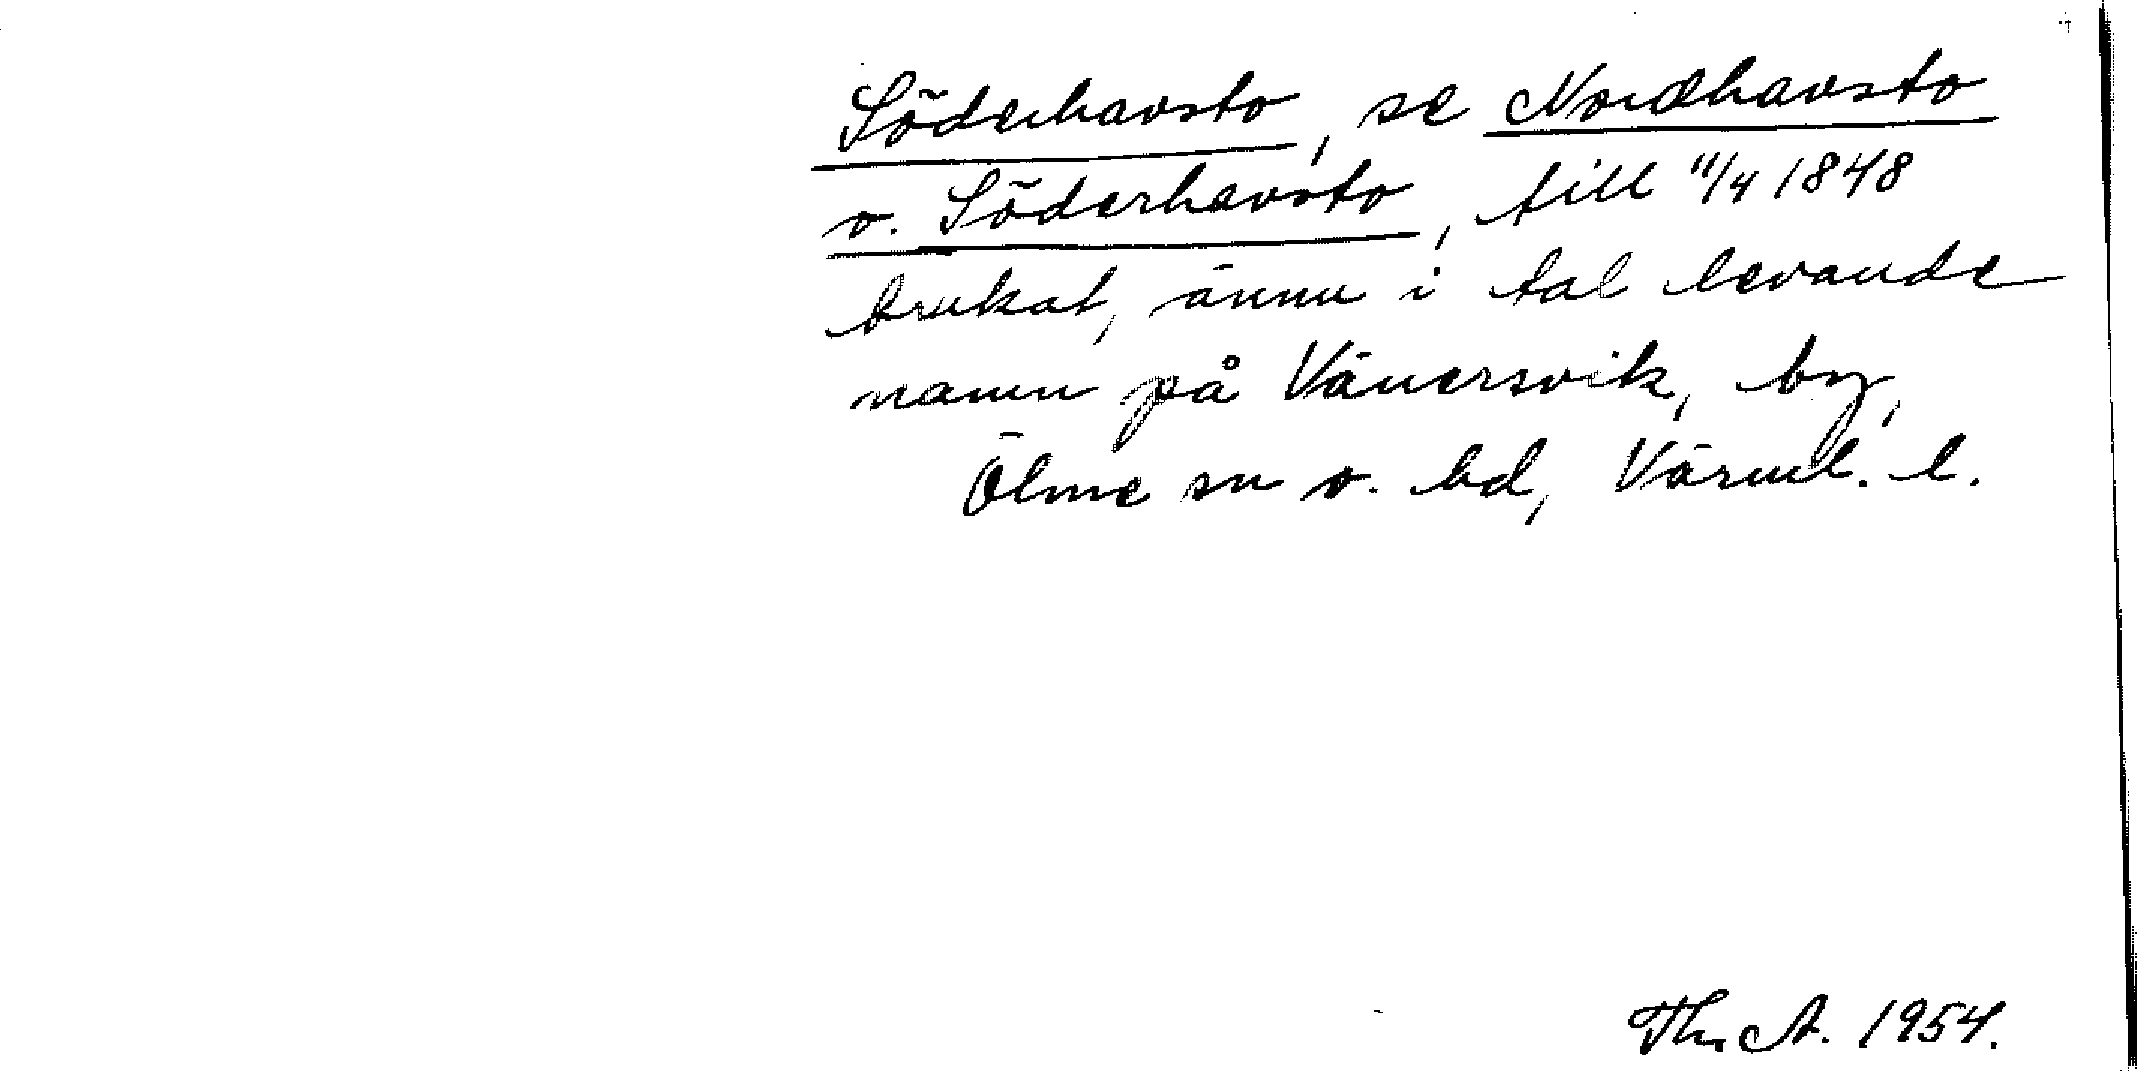 Söderhavsto, se Nordhavsto
o. Söderhavsto, till 11/4 1848
brukat, ännu i tal levande
namn på Vänersvik, by,
Ölme sn o. hd, Värml. l.
Th. A. 1954.